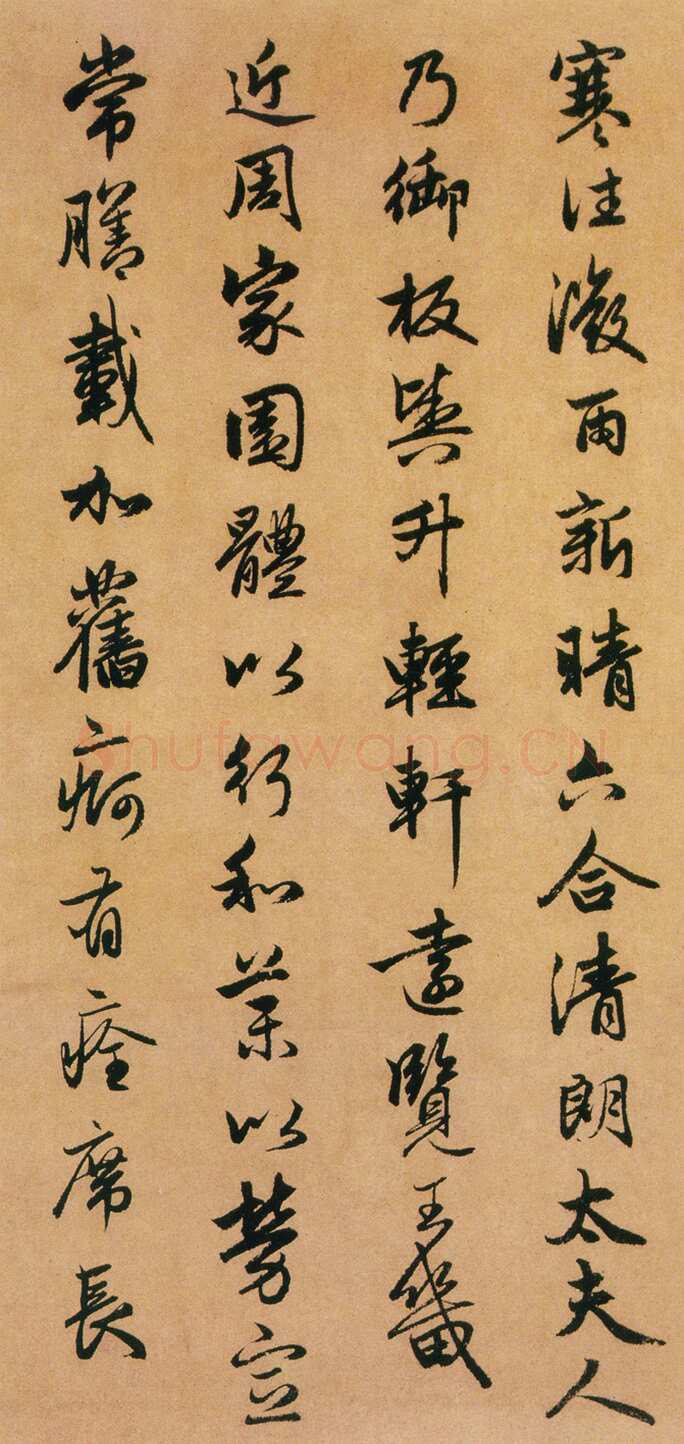 寒往溦雨新晴六合清朗太夫人
乃御板輿升輕軒遠覽王畿
近周家園體以行和藥以勞宣
常膳載加舊痾有痊席長
Shufawang.CN